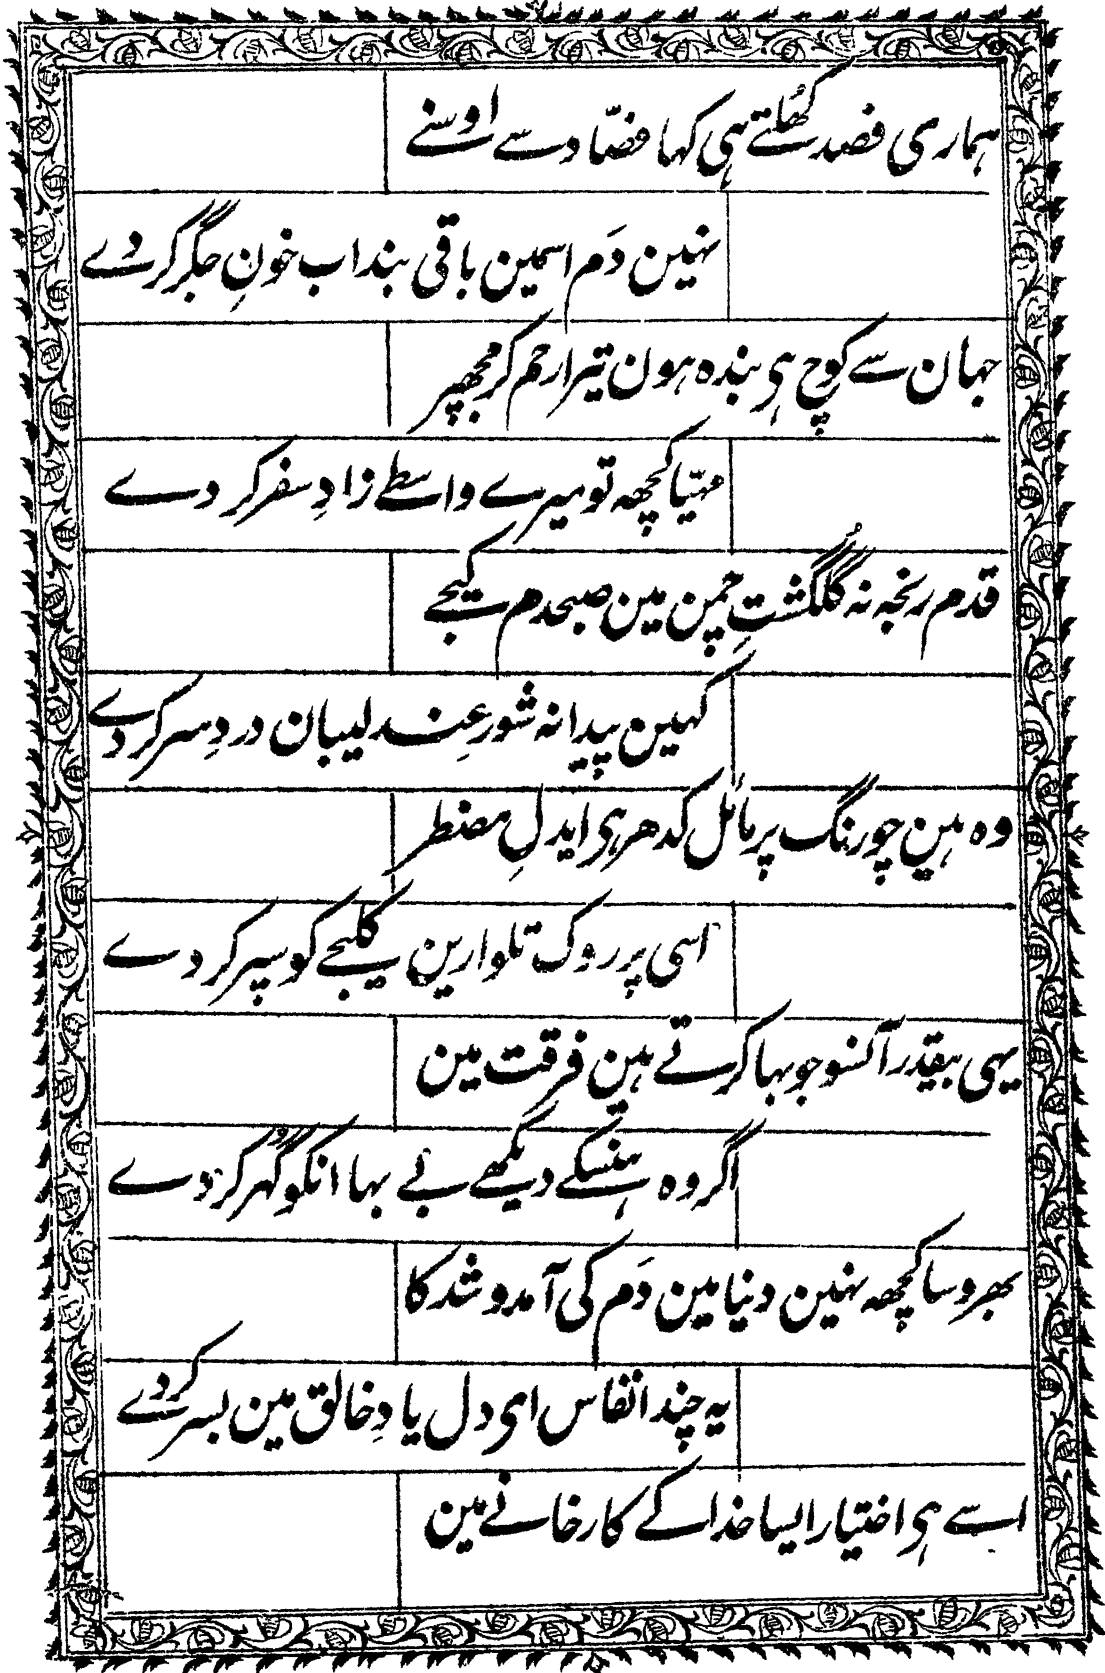 ہماری فصد کھُلتے ہی کہا فصّاد سے اوسنے
نہین دَم اسمین باقی بند اب خونِ جگر کر دے
جہان سے کوچ ہی بندہ ہون تیرا رحم کر مجھپر
مہیّا کچھہ تو میرے واسطے زادِ سفر کر دے
قدم رنجہ نہ گلگشتِ چمن مین صبحدم کیجے
کہین پیدا نہ شورِ عندلیبان دردِ سر کر دے
وہ ہین چورنگ پر مائل کدھر ہی ایدلِ مضطر
اسی پر روک تلوارین کلیجے کو سپر کر دے
یہی بیقدر آنسو جو بہا کرتے ہین فرقت مین
اگر وہ ہنسکے دیکھے بے بہا انکو گُہر کر دے
بھروسا کچھہ نہین دنیا مین دَم کی آمد و شد کا
یہ چند انفاس ای دل یادِ خالق مین بسر کر دے
اسے ہی اختیار ایسا خدا کے کارخانے مین